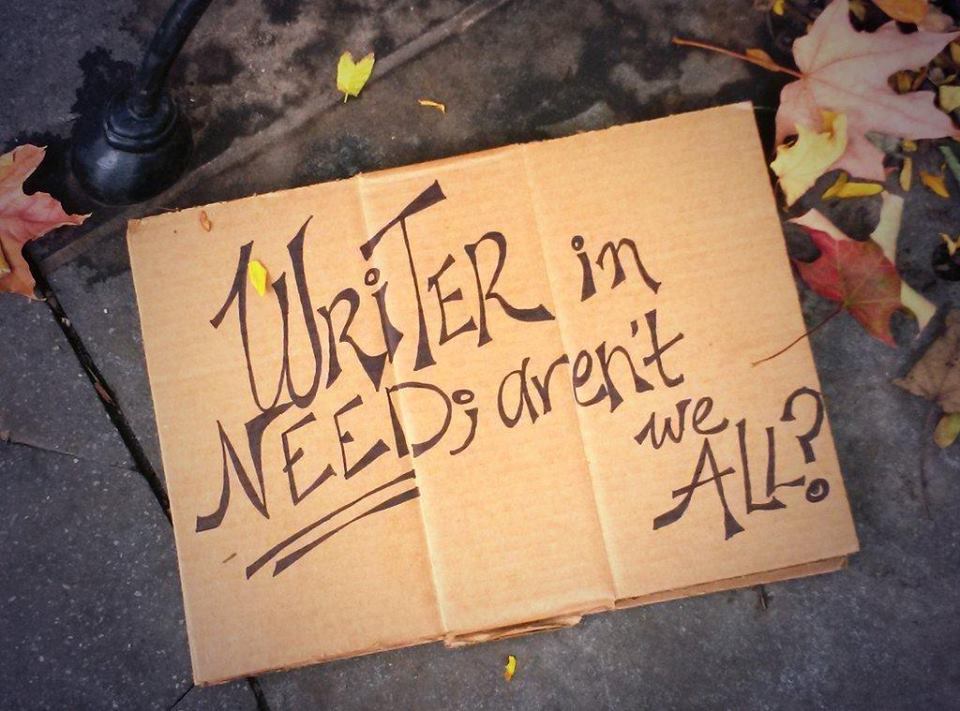 WRiTER in
NEED; aren't
we
ALL?